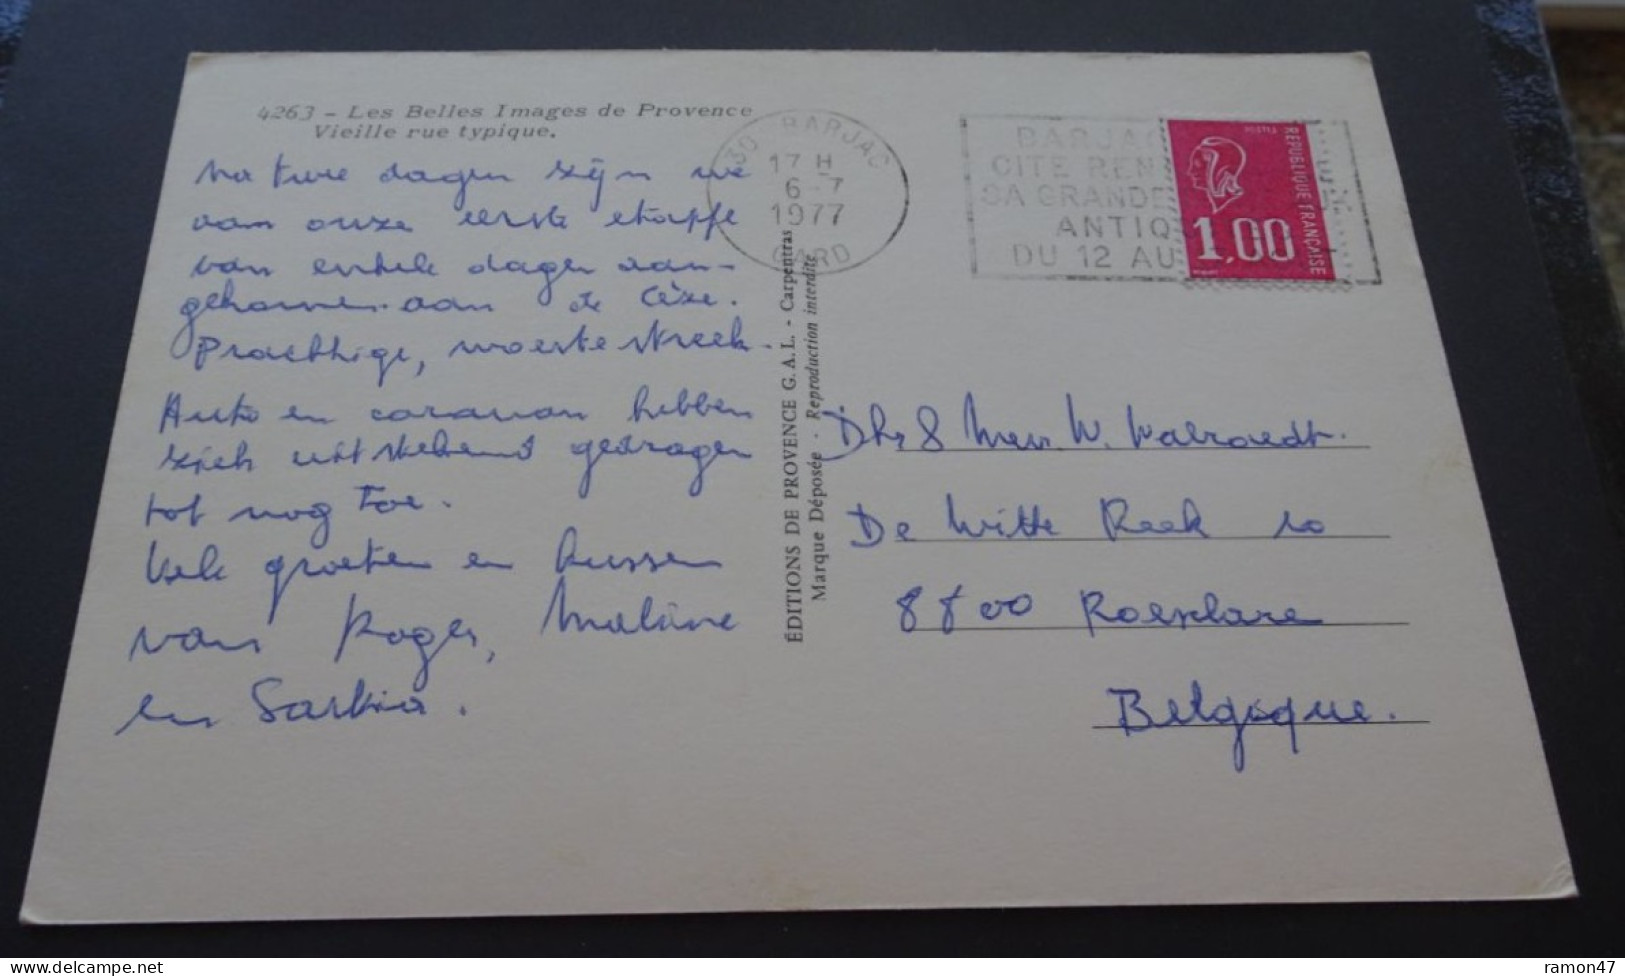 4263 - Les Belles Images de Provence
Vieille rue typique.
Na twee dagen zijn we
van onze eerste etappe
van enkele dagen aan-
gekomen aan de Cèze.
Prachtige, woeste streek.
Auto en caravan hebben
zich uitstekend gedragen
tot nog toe.
Vele groeten en kussen
van Roger,
en Saskia.
ÉDITIONS DE PROVENCE G.A.L. - Carpentras
Marque Déposée - Reproduction interdite
30 BARJAC
17 H
6-7
1977
GARD
BARJAC
CITE REN
SA GRANDE
ANTIQ
DU 12 AU
REPUBLIQUE FRANÇAISE
1,00
Dhr & Mevr. W.
De Witte Reek 10
8800 Roeselare
Belgique.
ramon47